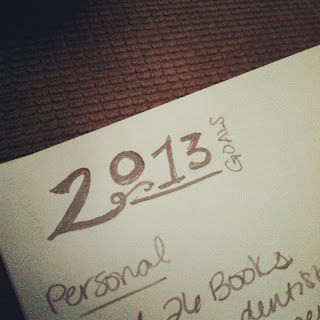 2013 GOALS
Personal
26 Books
dentist